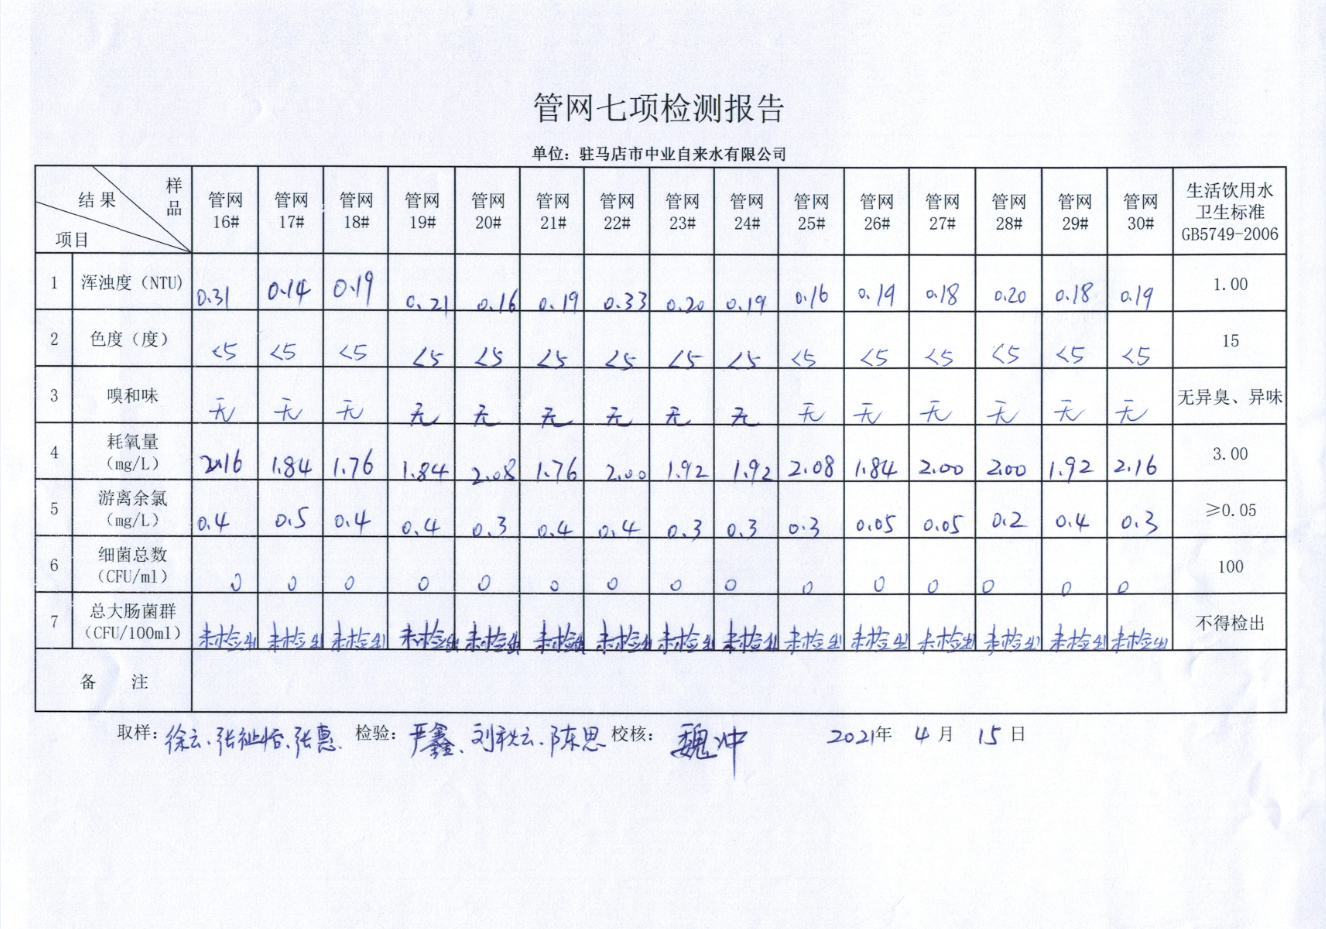 管网七项检测报告
单位：驻马店市中业自来水有限公司
样品 结果 项目 管网16# 管网17# 管网18# 管网19# 管网20# 管网21# 管网22# 管网23# 管网24# 管网25# 管网26# 管网27# 管网28# 管网29# 管网30# 生活饮用水卫生标准GB5749-2006
1 浑浊度（NTU） 0.31 0.14 0.19 0.21 0.16 0.19 0.33 0.20 0.19 0.16 0.19 0.18 0.20 0.18 0.19 1.00
2 色度（度） <5 <5 <5 <5 <5 <5 <5 <5 <5 <5 <5 <5 <5 <5 <5 15
3 嗅和味 无 无 无 无 无 无 无 无 无 无 无 无 无 无 无 无异臭、异味
4 耗氧量（mg/L） 2.16 1.84 1.76 1.84 2.08 1.76 2.00 1.92 1.92 2.08 1.84 2.00 2.00 1.92 2.16 3.00
5 游离余氯（mg/L） 0.4 0.5 0.4 0.4 0.3 0.4 0.4 0.3 0.3 0.3 0.05 0.05 0.2 0.4 0.3 ≥0.05
6 细菌总数（CFU/ml） 0 0 0 0 0 0 0 0 0 0 0 0 0 0 0 100
7 总大肠菌群（CFU/100ml） 未检出 未检出 未检出 未检出 未检出 未检出 未检出 未检出 未检出 未检出 未检出 未检出 未检出 未检出 未检出 不得检出
备 注
取样：徐云、张、张惠 检验：严鑫、刘秋云、陈思 校核：魏冲 2021年 4月 15日